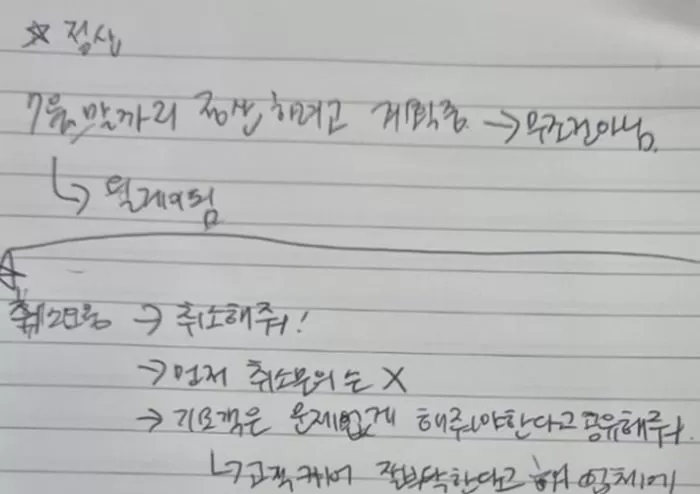 ☆ 정산
7월 말까지 정산하려고 계획중 → 무조건아님.
↳ 딜레이됨
→ 취소해줘!
→ 먼저 취소문의는 X
→ 기요객은 문제없게 해줘야한다고 공유해줘.
↳ 고객케어 잘부탁한다고 업체에